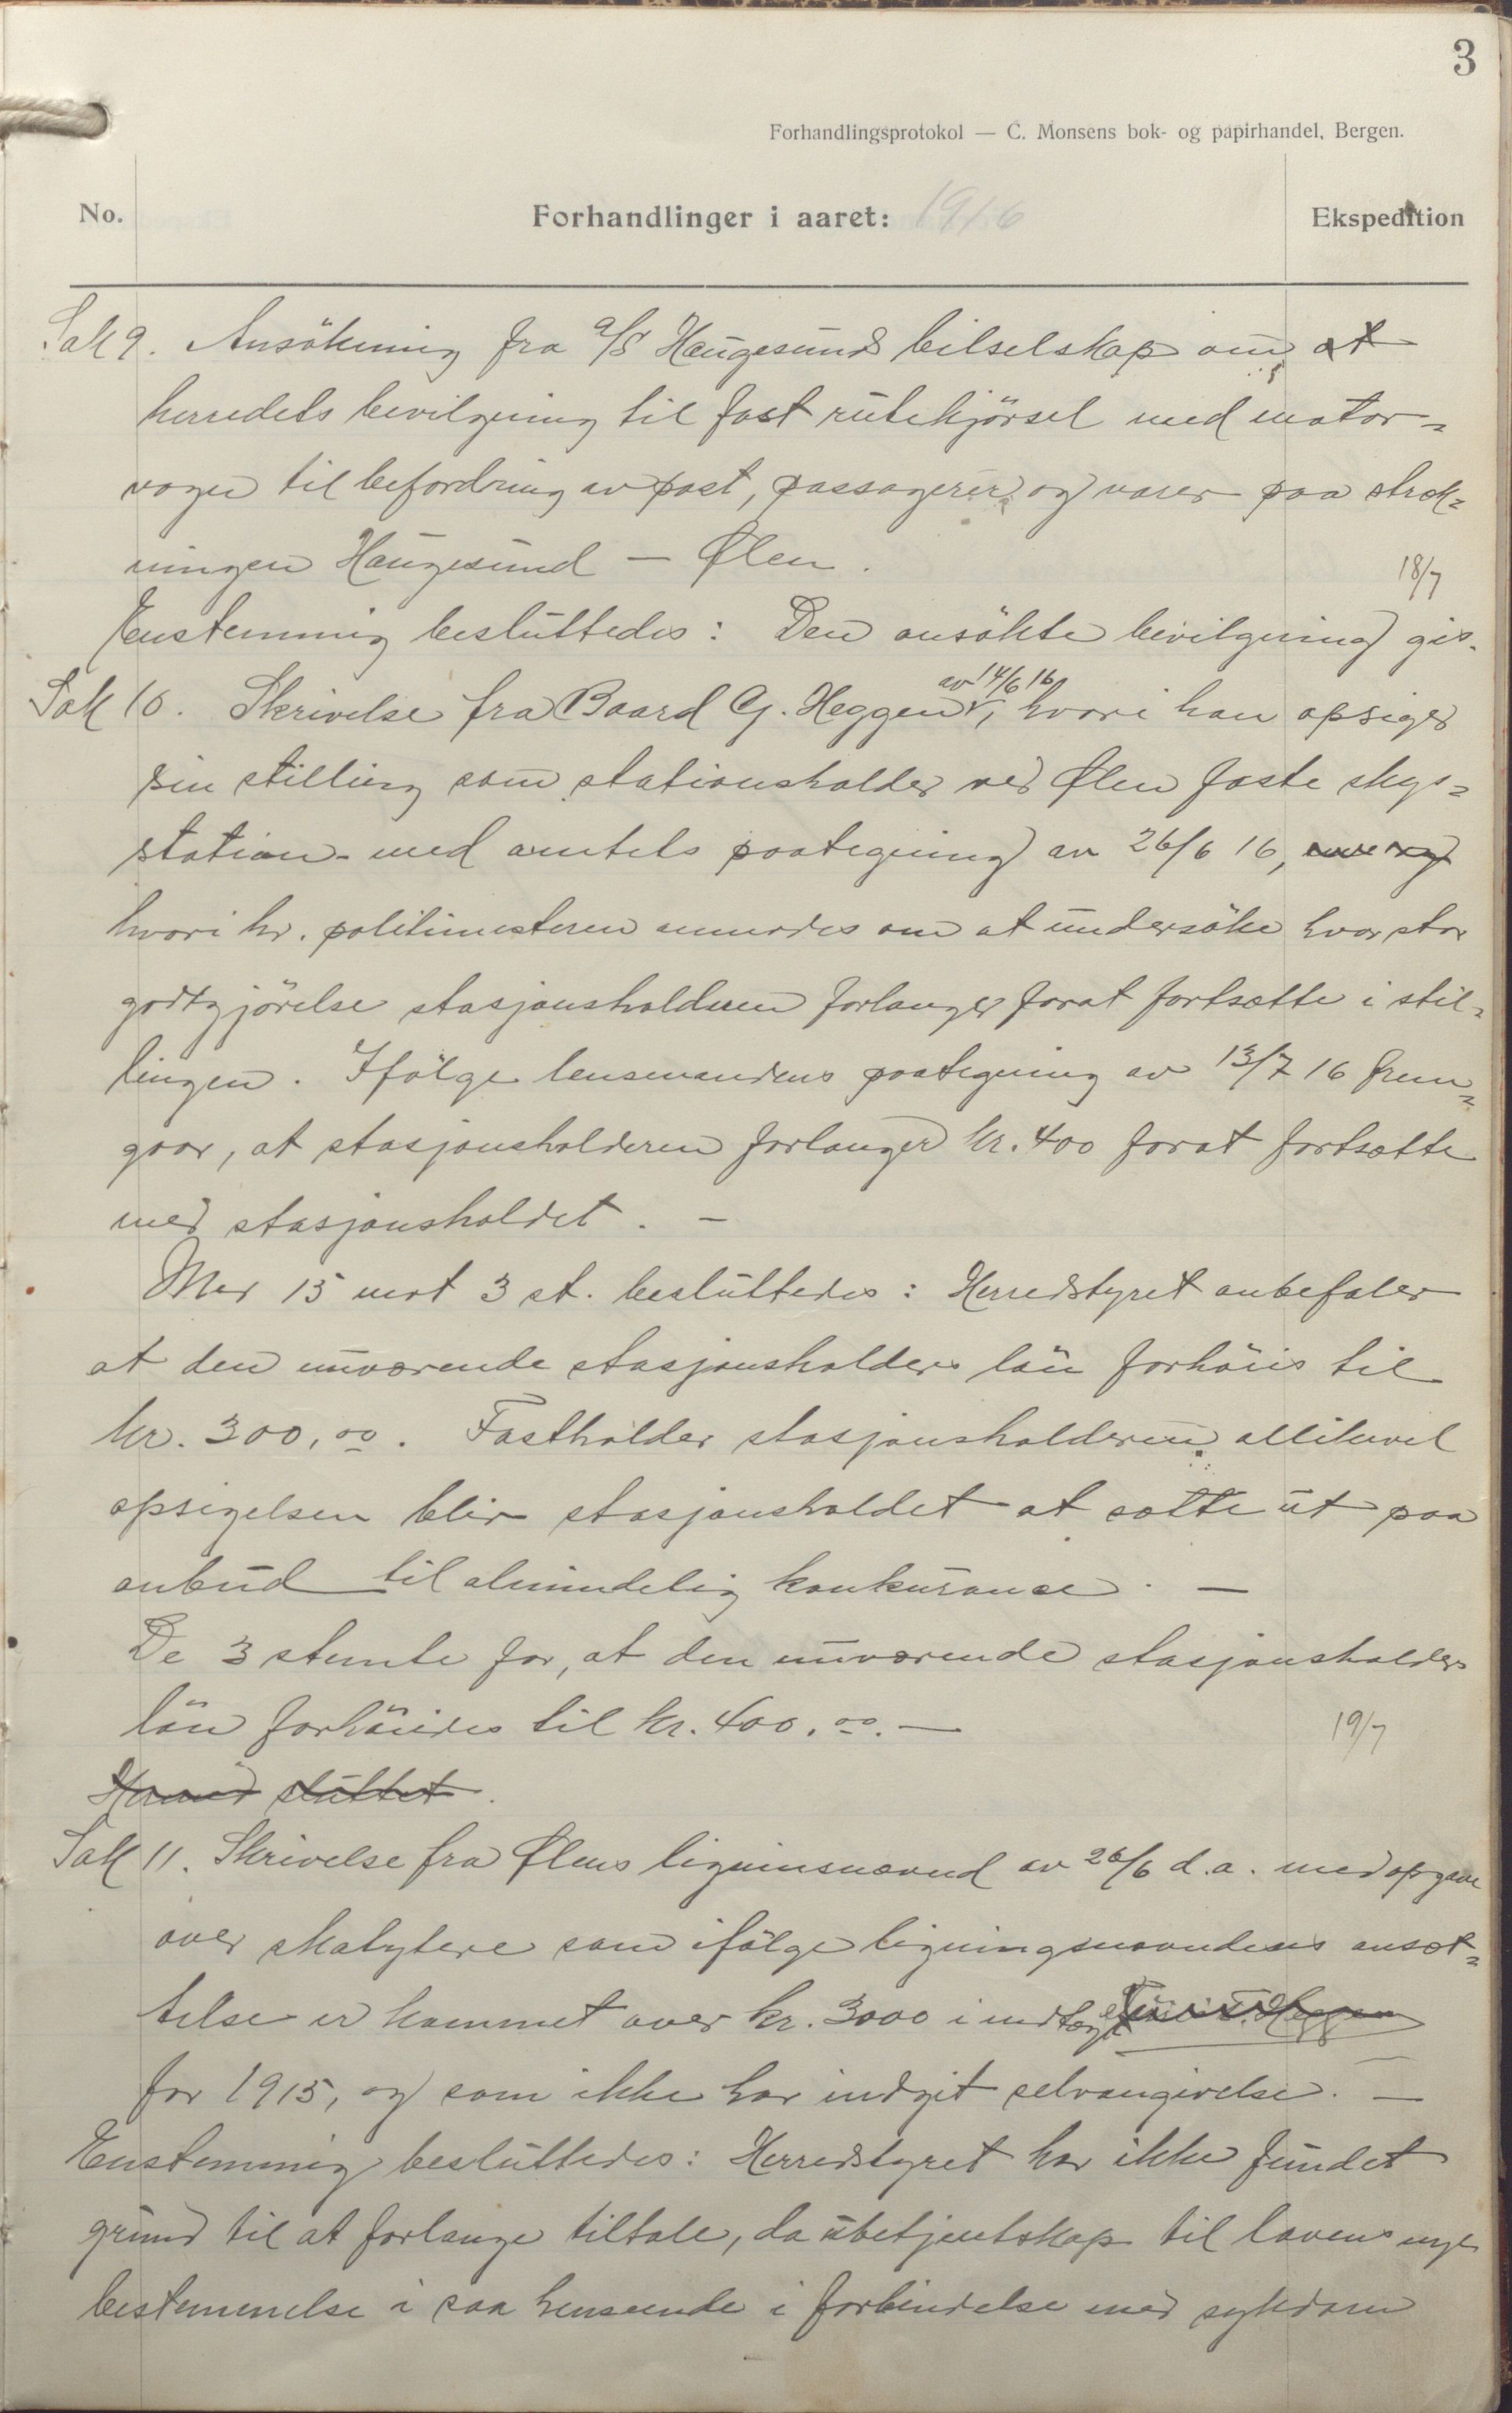 3
Forhandlingsprotokol — C. Monsens bok- og papirhandel, Bergen.
No. Forhandlinger i aaret: 1916 Ekspedition
Sak 9. Ansökning fra a/s Haugesunds bilselskap om at
herredets bevilgning til fast rutekjörsel med motor=
vogn til befordring av post, passagerer og varer paa strek=
ningen Haugesund — Ølen.
18/7
Enstemmig besluttedes: Den ansökte bevilgning gis.
av 14/6 16
Sak 10. Skrivelse fra Baard G. Heggen, hvori han opsiger
sin stilling som stationsholder ved Ølen faste skys=
station - med amtets paategning av 26/6 16,
hvori hr. politimesteren anmodes om at undersöke hvor stor
godtgjörelse stasjonsholderen forlanger forat fortsætte i stil=
lingen. Ifölge lensmandens paategning av 13/7 16 frem=
gaar, at stasjonsholderen forlanger kr. 400 forat fortsætte
med stasjonsholdet. —
Med 15 mot 3 st. besluttedes: Herredstyret anbefaler
at den nuværende stasjonsholders lön forhöies til
kr. 300,00. Fastholder stasjonsholderen allikevel
opsigelsen blir stasjonsholdet at sætte ut paa
anbud til almindelig konkurance. —
De 3 stemte for, at den nuværende stasjonsholders
lön forhöiedes til kr. 400,00. —
19/7
Hermed sluttet.
Sak 11. Skrivelse fra Ølens ligninsnævnd av 26/6 d.a. med opgave
over skatytere som ifölge ligningsnævndens ansæt=
telse er kommet over kr. 3000 i indtægt
for 1915, og som ikke har indgit selvangivelse. —
Enstemmig besluttedes: Herredstyret har ikke fundet
grund til at forlange tiltale, da ubekjentskap til lovens nye
bestemmelse i saa henseende i forbindelse med sykdom